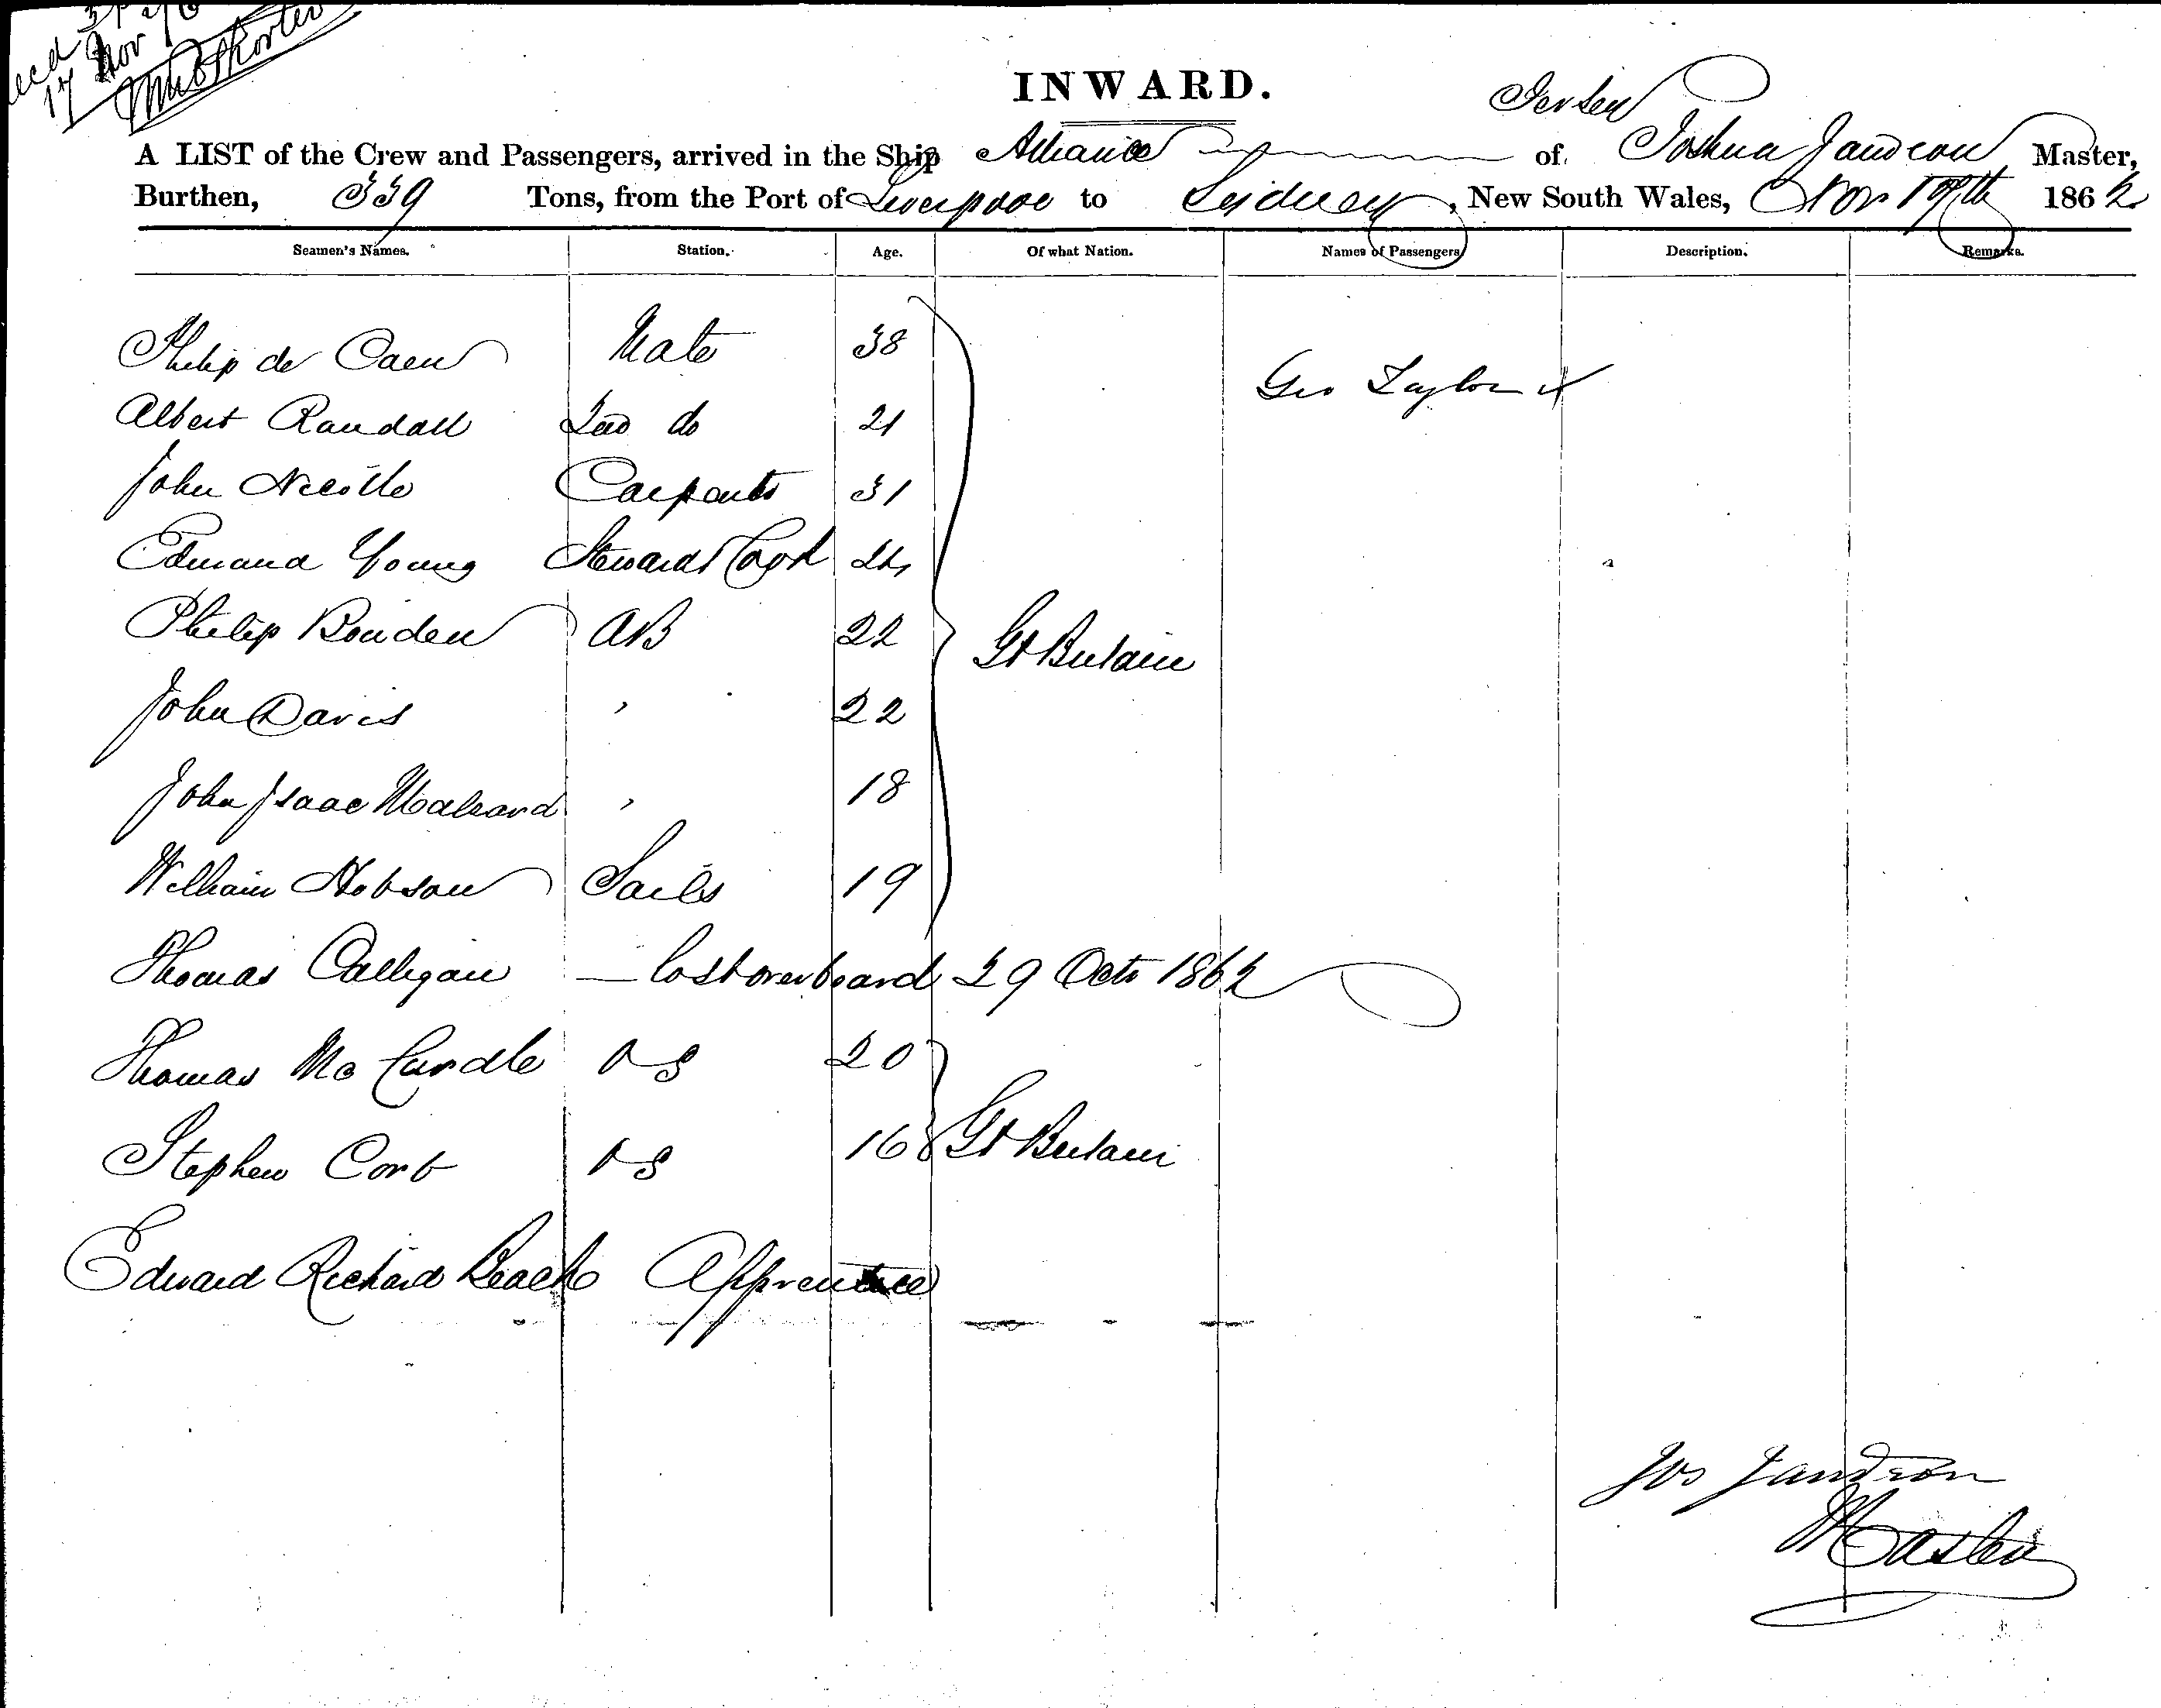 17 Nov
INWARD.
Jersey
A LIST of the Crew and Passengers, arrived in the Ship Alliance of Joshua Jandron Master,
Burthen, 339 Tons, from the Port of Liverpool to Sydney, New South Wales, Nov 17th 1862
Seamen's Names. Station. Age. Of what Nation. Names of Passengers Description. Remarks.
Philip de Caen Mate 38
Geo Taylor
Albert Randall 2nd do 21
John Carpenter 31
Edmund Young Steward & Cook 24
Philip Bouden AB 22
Gt Britain
John Davis " 22
John Isaac Malzard " 18
William Hobson Sails 19
Thomas Calligan — lost overboard 29 Octr 1862
Thomas Mc Cardle OS 20
Stephen Corb OS 16 Gt Britain
Edward Richard Beach Apprentice
Jos Jandron
Master